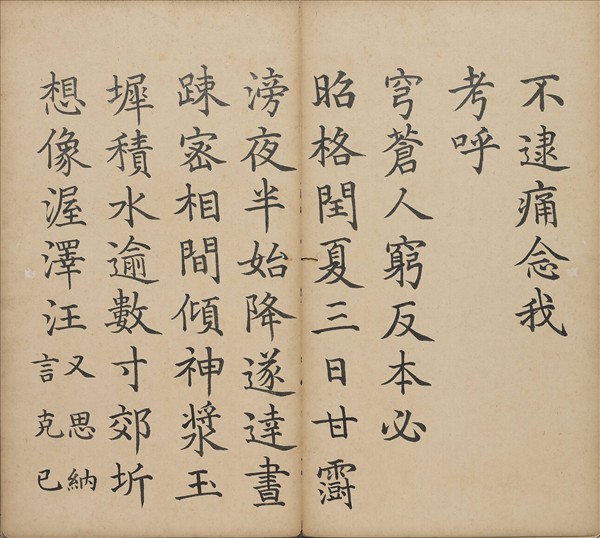 不逮痛念我
考呼
穹蒼人窮反本必
昭格閏夏三日甘澍
滂夜半始降遂達晝
踈宻相間傾神漿玉
墀積水逾數寸郊圻
想像渥澤汪
又思納
言克己